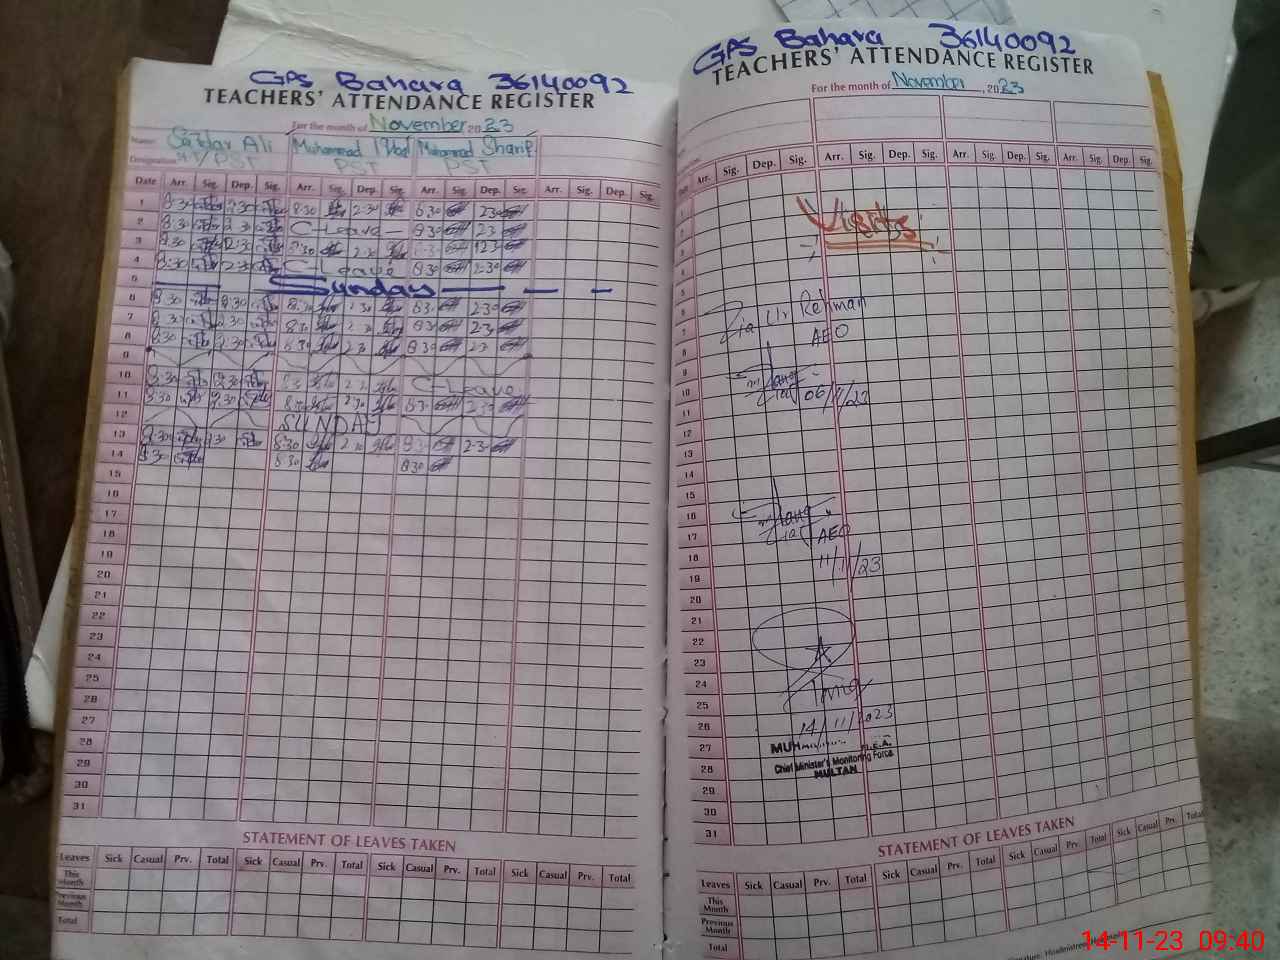 GPS Bahara 36140092
TEACHERS' ATTENDANCE REGISTER
For the month of November 2023
Name: Safdar Ali Muhammad Iqbal Muhammad Sharif
Designation HT/PST PST PST
Date Arr. Sig. Dep. Sig. Arr. Sig. Dep. Sig. Arr. Sig. Dep. Sig. Arr. Sig. Dep. Sig.
1 8:30 2:30 8:30 2:30 8:30 2:30
2 8:30 2:30 C-Leave 8:30 2:30
3 8:30 12:30 8:30 2:30 8:30 12:30
4 8:30 2:30 C-Leave 8:30 2:30
5 Sunday
6 8:30 2:30 8:30 2:30 8:30 2:30
7 8:30 2:30 8:30 2:30 8:30 2:30
8 8:30 2:30 8:30 2:30 8:30 2:30
9
10 8:30 2:30 8:30 2:30 C-Leave
11 8:30 2:30 8:30 2:30 8:30 2:30
12 SUNDAY
13 8:30 2:30 8:30 2:30 8:30 2:30
14 8:30 8:30 8:30
15
16
17
18
19
20
21
22
23
24
25
26
27
28
29
30
31
STATEMENT OF LEAVES TAKEN
Leaves Sick Casual Prv. Total Sick Casual Prv. Total Sick Casual Prv. Total Sick Casual Prv. Total
This Month
Previous Month
Total
GPS Bahara 36140092
TEACHERS' ATTENDANCE REGISTER
For the month of November, 2023
Arr. Sig. Dep. Sig. Arr. Sig. Dep. Sig. Arr. Sig. Dep. Sig. Arr. Sig. Dep. Sig.
1
2
Visits
3
4
5
6
Zia Ur Rehman
7
AEO
8
9
10
06/11/23
11
12
13
14
15
16
17
AEO
18
11/11/23
19
20
21
22
23
24
25
26
14/11/2023
27
MUHA M.E.A.
28
Chief Minister's Monitoring Force
MULTAN
29
30
31
STATEMENT OF LEAVES TAKEN
Leaves Sick Casual Prv. Total Sick Casual Prv. Total Sick Casual Prv. Total Sick Casual Prv. Total
This Month
Previous Month
Total
14-11-23 09:40